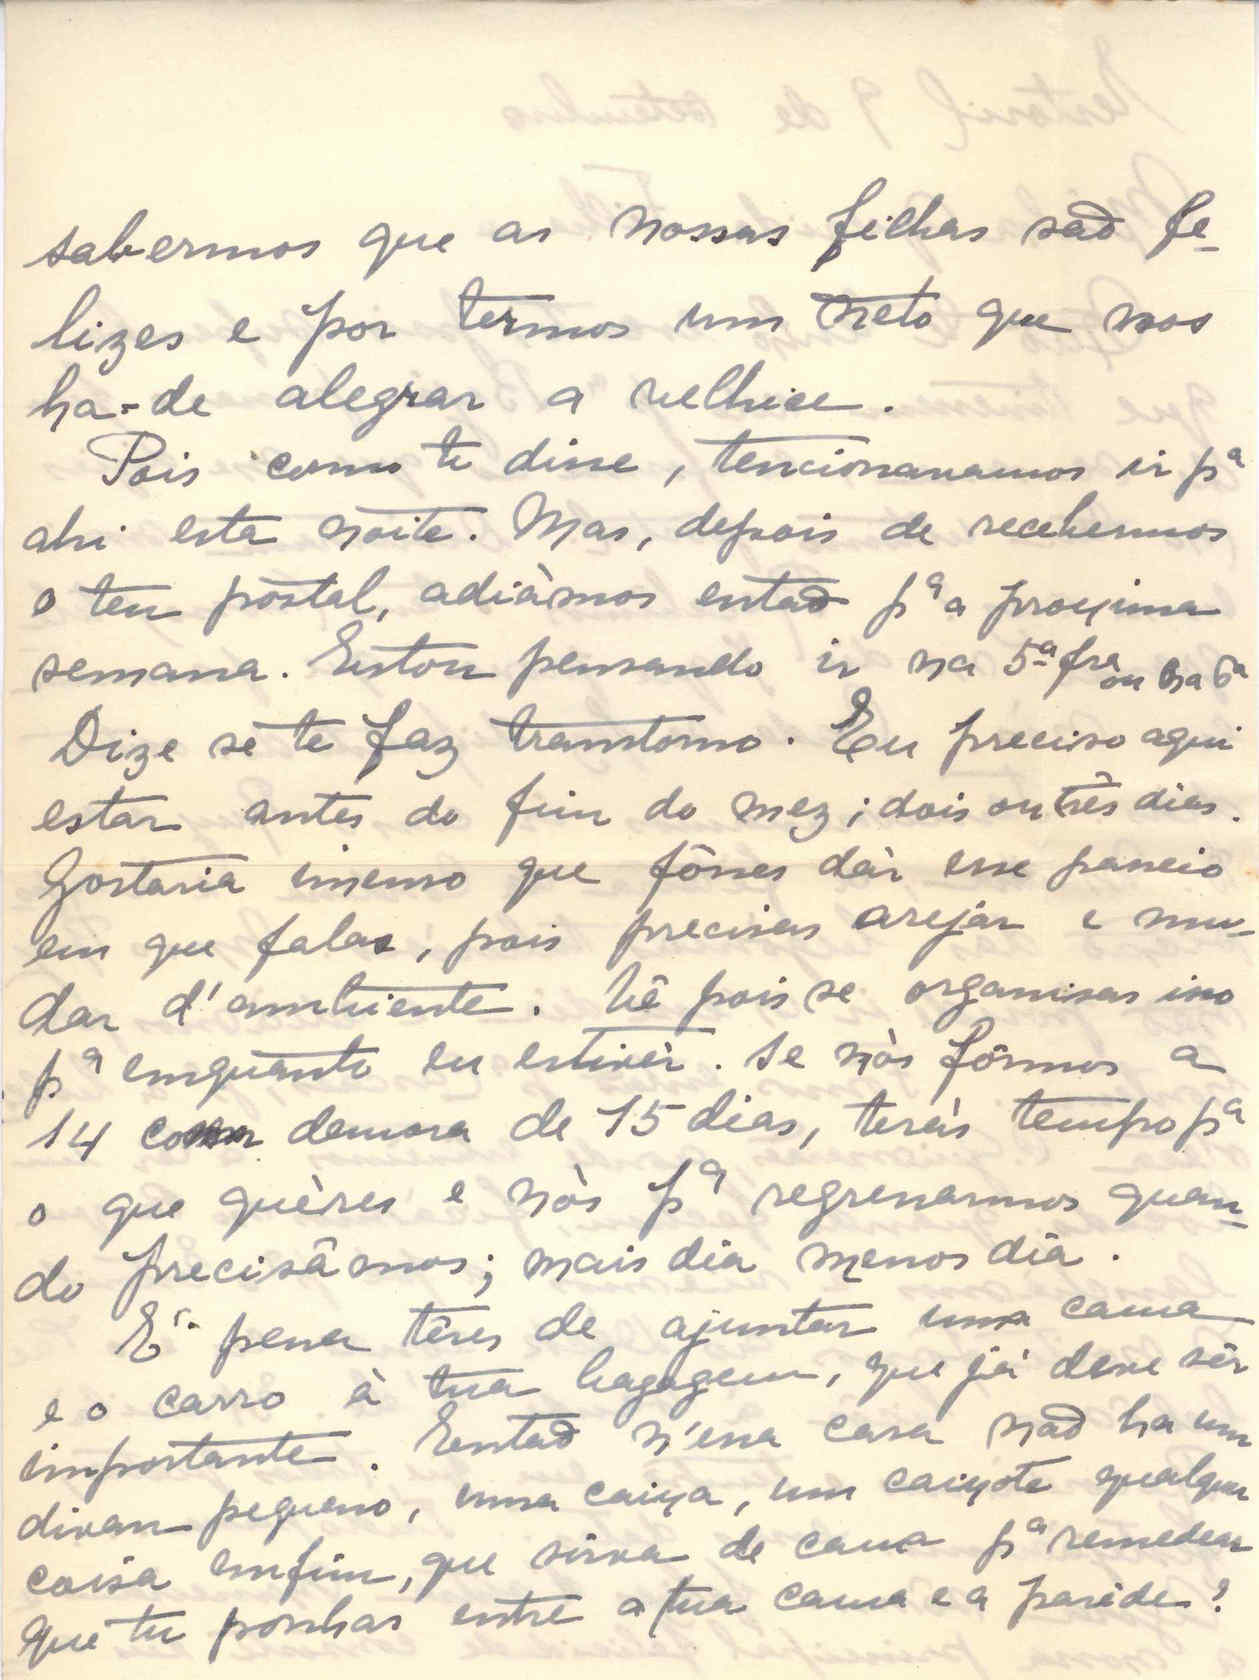 sabermos que as nossas filhas são fe-
lizes e por termos um neto que nos
ha-de alegrar a velhice.
Pois como te disse, tencionavamos ir pª
ahi esta noite. Mas, depois de recebermos
o teu postal, adiàmos então pª a proxima
semana. Estou pensando ir na 5ª fra ou na 6ª
Dize se te faz transtorno. Eu preciso aqui
estar antes do fim do mez; dois ou três dias.
Gostaria imenso que fôsses dár esse passeio
em que falas, pois precisas arejar e mu-
dar d'ambiente. Vê pois se organisas isso
pª emquanto eu estivér. Se nós fôrmos a
14 com demora de 15 dias, terás tempo pª
o que quères e nòs pª regressarmos quan-
do precisâmos; mais dia menos dia.
E' pena têres de ajuntar uma cama
e o carro à tua bagagem, que já deve sêr
importante. Então n'essa casa não ha um
divan pequeno, uma caixa, um caixote qualquer
coisa emfim, que sirva de cama pª remedear
que tu ponhas entre a tua cama e a parêde?